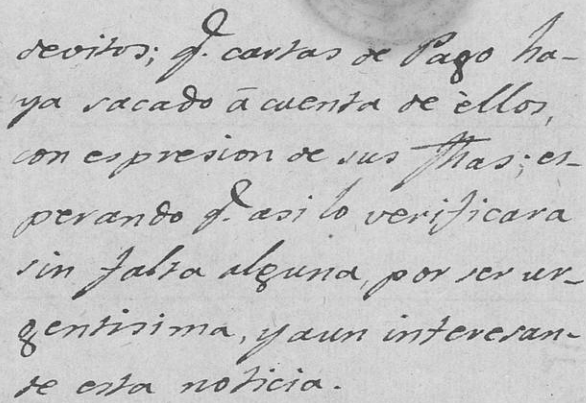 devitos; q.e cartas de Pago ha-
ya sacado â cuenta de èllos,
con espresion de sus fhas; es-
perando q.e asi lo verificara
sin falta alguna, por ser ur-
gentisima, y aun interesan-
te esta noticia.